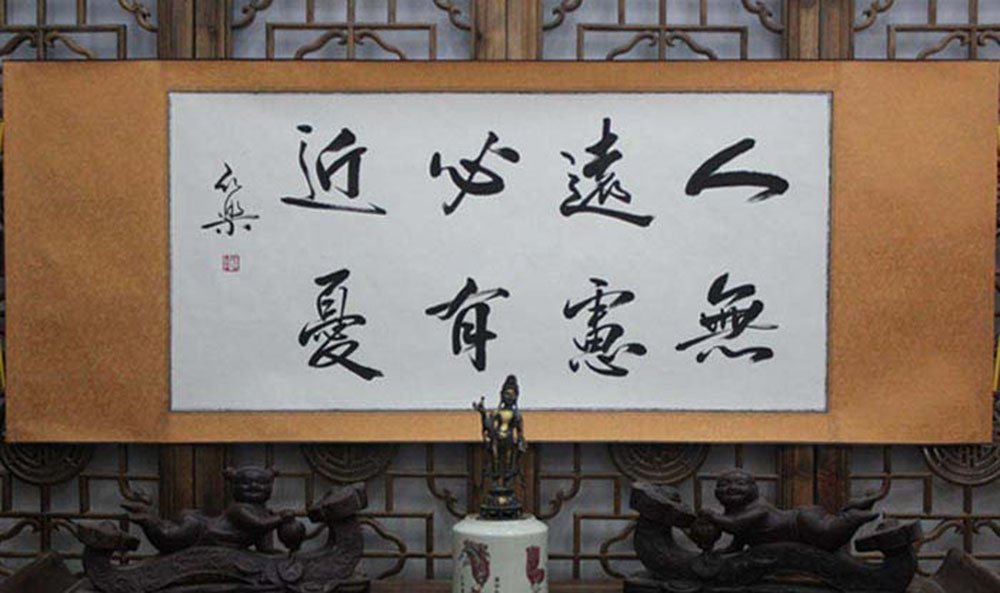 人無
遠慮
必有
近憂